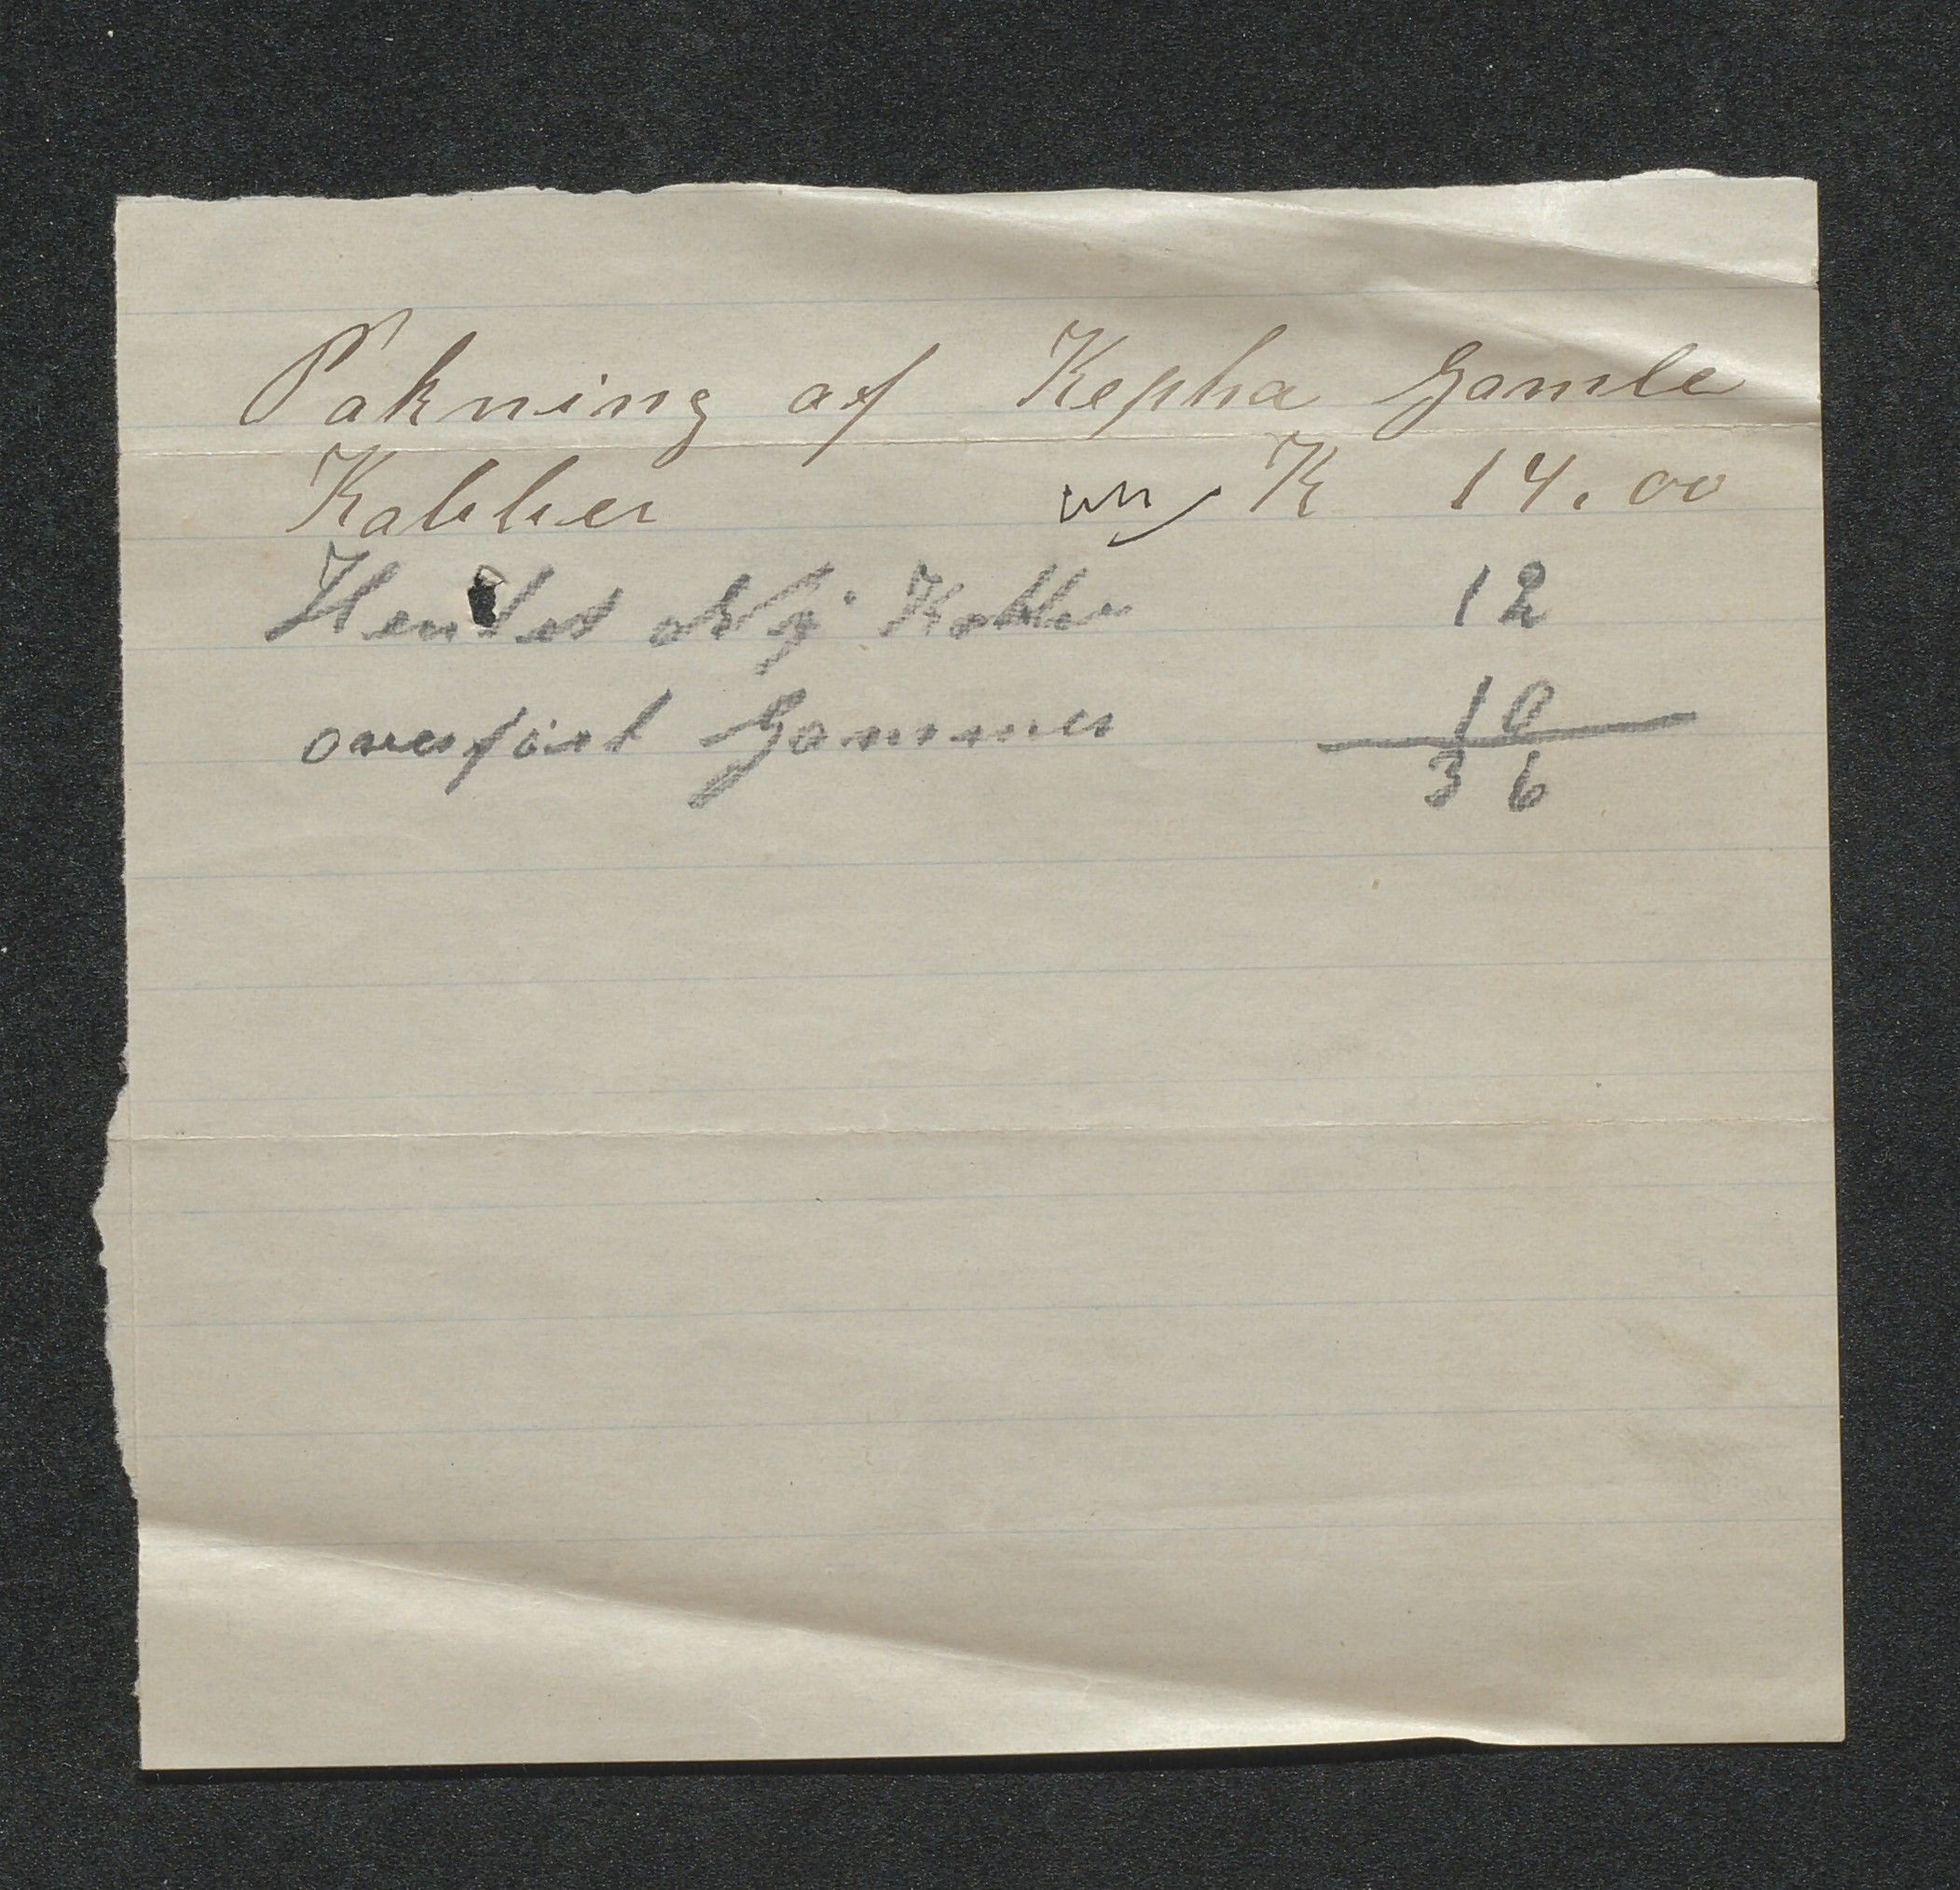 Pakning af Kepha Gamle
Kobber K 14.00
Hentet Kobber 12
overført Gammer 10
36